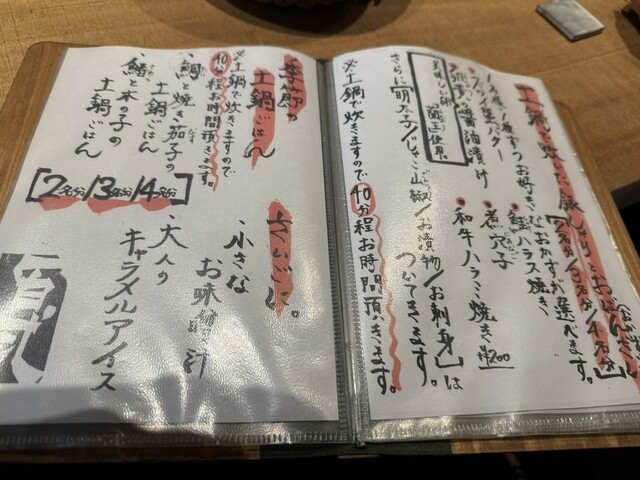 土鍋で炊いた銀しゃりとおばんざい
【2名分/3名分/4名分】
お好きなおかずが選べます。
・鮭ハラス焼き
・煮穴子
・和牛ハラミ焼き
美味しい卵 蘭王使用
さらに「明太子/じゃこ山椒/お漬物/お刺身」は
ついてきます。
※土鍋で炊きますので40分程お時間頂きます。
季節の
土鍋ごはん
※土鍋で炊きますので
40分程お時間頂きます。
・鯛と焼き茄子の
土鍋ごはん
土鍋ごはん
【2名分/3名分/4名分】
さいごに。
・小さな
お味噌汁
・大人の
キャラメルアイス